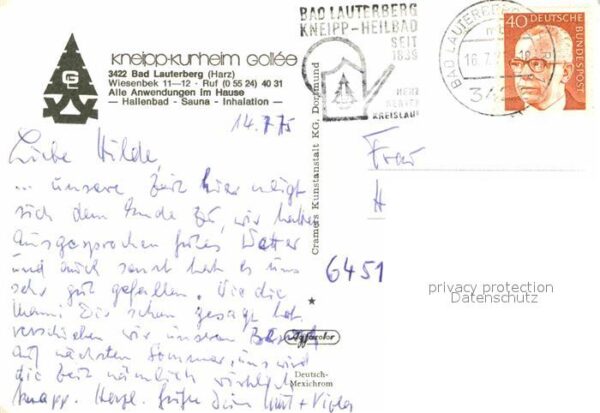 kneipp-kurheim gollée
3422 Bad Lauterberg (Harz)
Wiesenbek 11—12 · Ruf (0 55 24) 40 31
Alle Anwendungen im Hause
— Hallenbad - Sauna - Inhalation —
BAD LAUTERBERG
KNEIPP-HEILBAD
SEIT
1839
HERZ
NERVEN
KREISLAUF
BAD LAUTERBERG
16.7.7
342
40 DEUTSCHE
BUNDESPOST
14.7.75
Liebe Hilde,
... unsere Zeit hier neigt
sich dem Ende zu, wir hatten
ausgesprochen gutes Wetter
und auch sonst hat es uns
sehr gut gefallen. Wie die
Mami Dir schon gesagt hat,
verschieben wir unseren Besuch
auf nächsten Sommer, uns wird
die Zeit nämlich wirklich
knapp. Herzl. Grüße Dein Kurt +
Cramers Kunstanstalt KG, Dortmund
Frau
H
6451
Agfacolor
Deutsch-
Mexichrom
privacy protection
Datenschutz